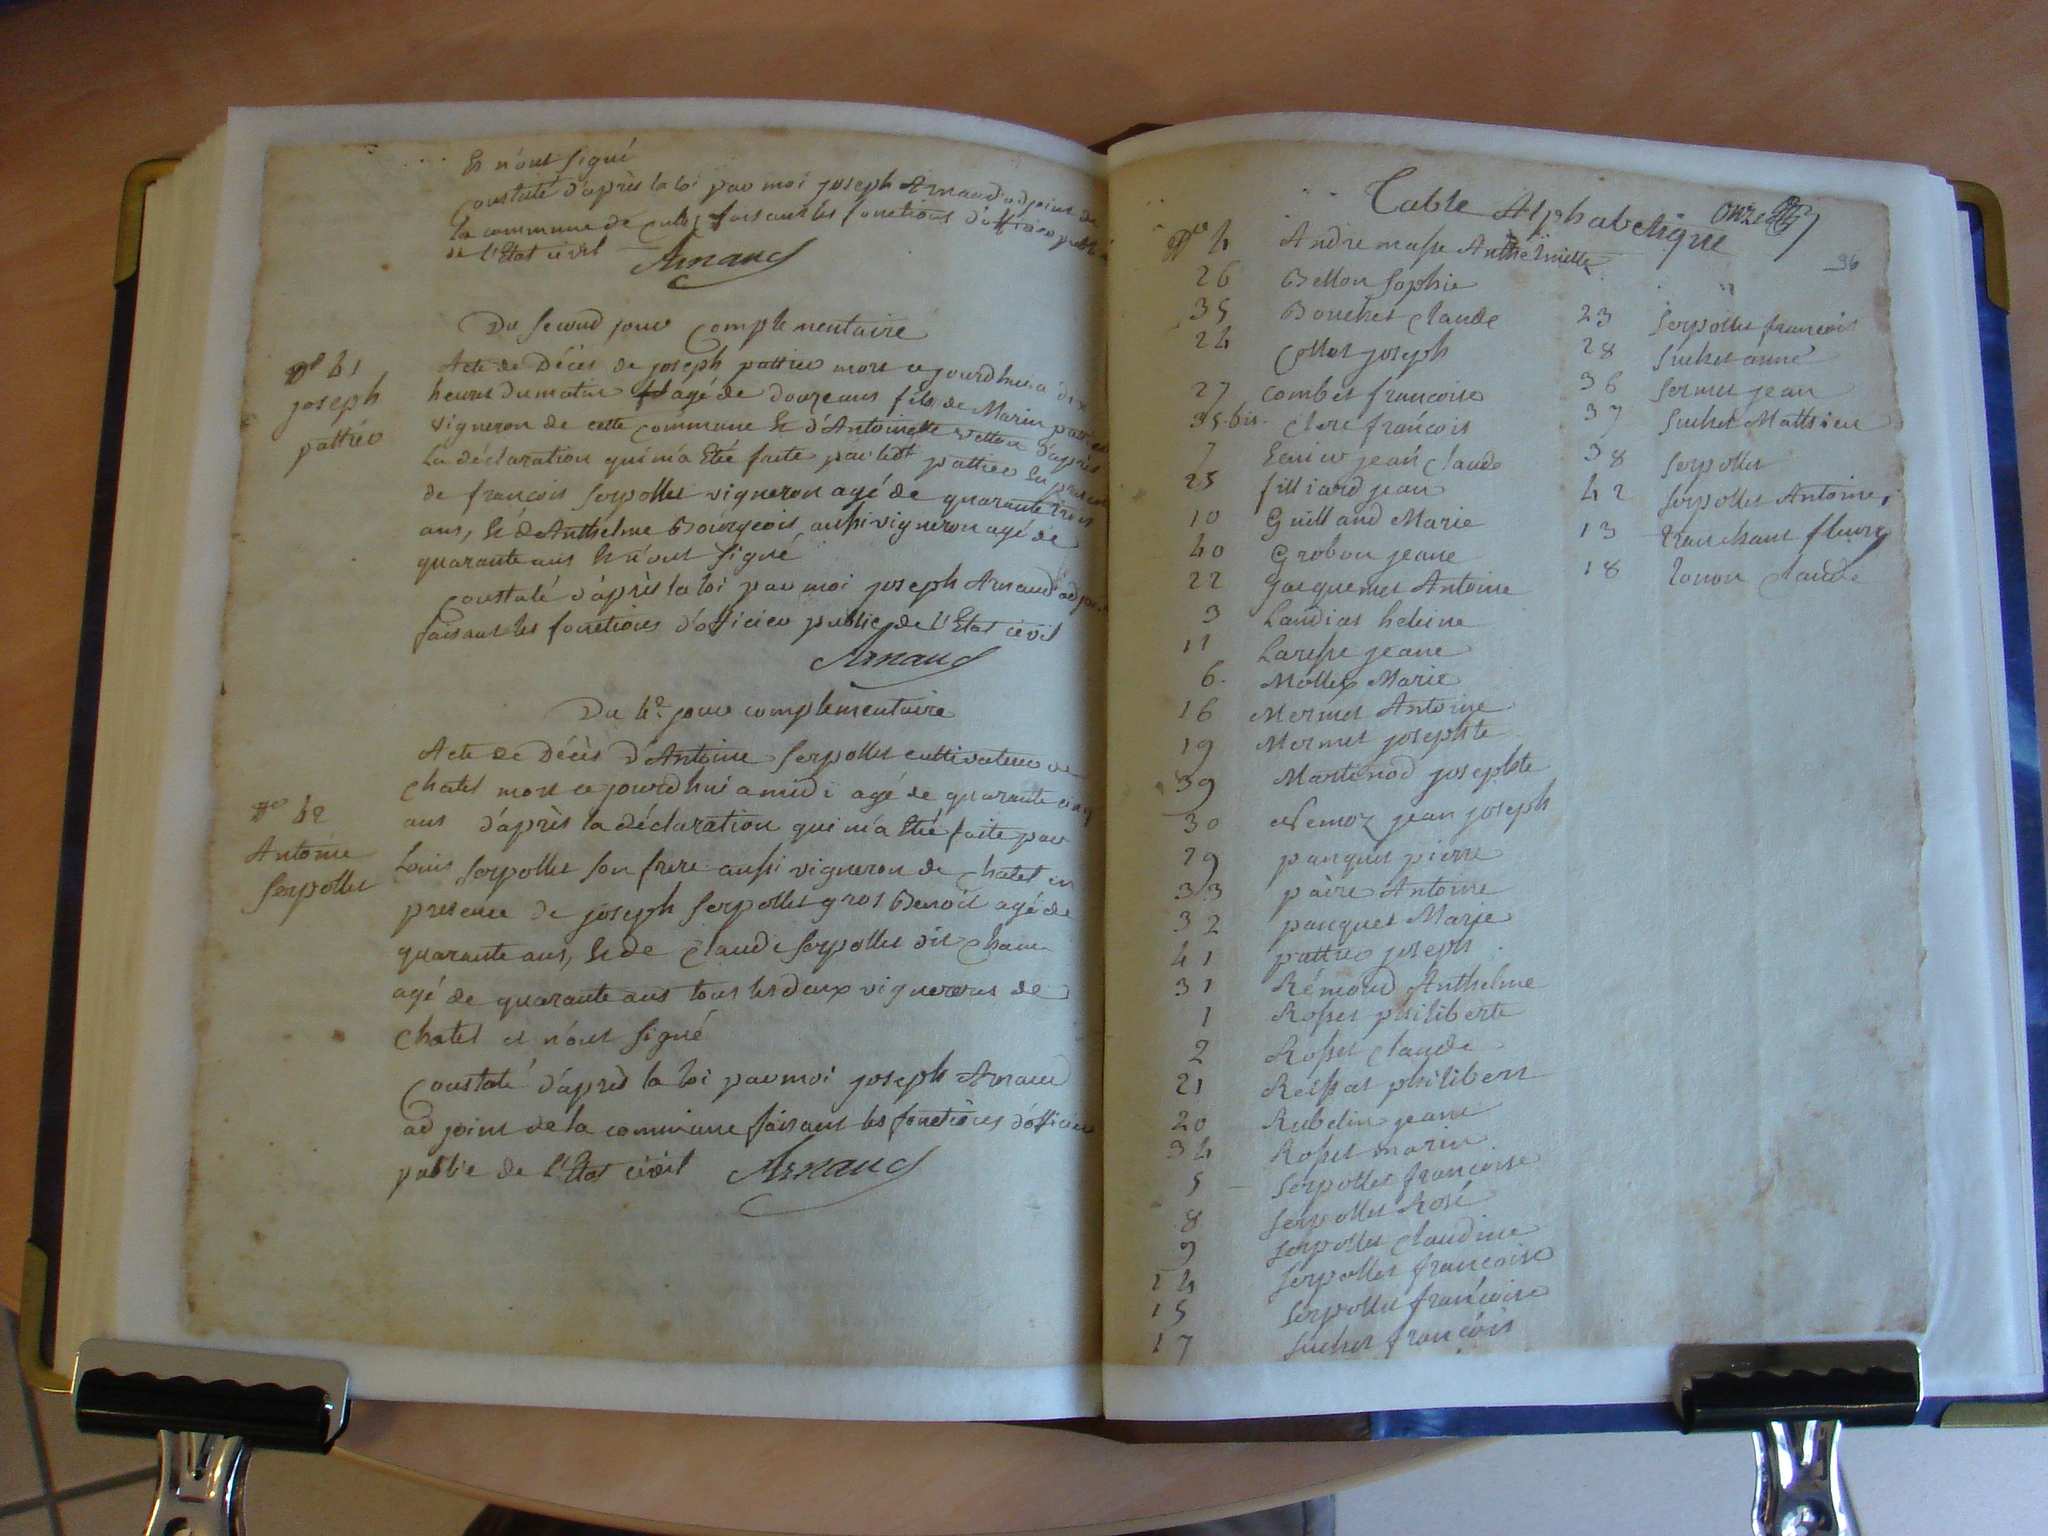 et n'ont signé
Constaté d'après la loi par moi joseph Arnaud adjoint de
la commune de Culoz faisant les fonctions d'officier public
de l'Etat civil Arnaud
Du second jour complementaire
No 41
joseph
pattrev
Acte de Décès de joseph pattrev mort cejourdhui a dix
heures du matin agé de douze ans fils de Marin
vigneron de cette commune et d'Antoinette vetton d'après
La déclaration qui m'a Eté faite par ledt pattrev En presence
de francois serpollet vigneron agé de quarante trois
ans, et d'Anthelme Bourgeois aussi vigneron agé de
quarante ans et n'ont signé
Constaté d'après la loi par moi joseph Arnaud
faisant les fonctions d'officier public de l'Etat civil
Arnaud
Du 4e jour complementaire
No 42
Antoine
serpollet
Acte de Décès d'Antoine serpollet cultivateur de
Chatel mort cejourdhui a midi agé de quarante cinq
ans d'après la déclaration qui m'a Eté faite par
Louis serpollet son frere aussi vigneron de Chatel en
presence de joseph serpollet gros Benoit agé de
quarante ans, et de Claude serpollet dit
agé de quarante ans tous les deux vignerons de
Chatel et n'ont signé
Constaté d'après la loi par moi joseph Arnaud
adjoint de la commune faisant les fonctions d'officier
public de l'Etat civil Arnaud
Table Alphabetique onze
96
No 4 Andre masse Anthelmette
26 Bellon sophie
35 Bouchet Claude
24 Collet joseph
27 Combet francoise
35 bis. Clerc francois
7 jean Claude
25 filliard jean
10 Guilland Marie
40 Grobon jeane
22 jacquemet Antoine
3 Landias helene
11 jeane
6. Mollex Marie
16 Mermet Antoine
19 Mermet josephte
39 Martinod josephte
30 Nemoz jean joseph
29 panquet pierre
33 pàire Antoine
32 panquet Marie
41 pattrev joseph
31 Rémond Anthelme
1 Rosset philiberte
2 Rosset Claude
21 philibert
20 Rubelin jeane
34 Rosset marin
5 serpollet francoise
8 serpollet Rose
9 serpollet Claudine
14 serpollet francoise
15 serpollet francoise
17 suchet francois
23 serpollet francois
28 suchet anne
36 sermet jean
37 suchet Matthieu
38 serpollet
42 serpollet Antoine
13 tranchant fleury
18 Claude